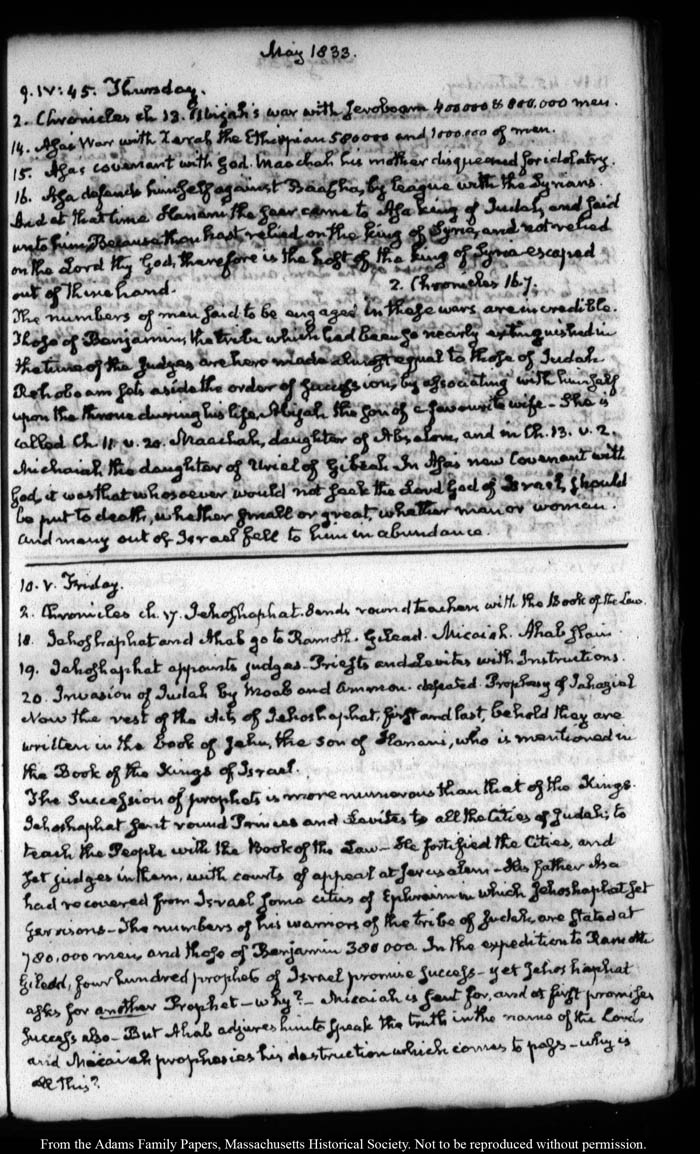 May 1833.
9. IV: 45. Thursday.
2. Chronicles ch 13. Abijah's war with Jeroboam 400000 & 800,000 men.
14. Asa's War with Zerah the Ethiopian 580000 and 1000.000 of men.
15. Asa's covenant with God. Maachah his mother disqueened for idolatry.
16. Asa defends himself against Baasha, by league with the Syrians.
And at that time Hanani the Seer came to Asa king of Judah, and said
unto him, Because thou hast relied on the king of Syria, and not relied
on the Lord thy God, therefore is the host of the king of Syria escaped
out of thine hand. 2. Chronicles 16.7.
The numbers of men said to be engaged in these wars are incredible.
Those of Benjamin, the tribe which had been so nearly extinguished in
the time of the Judges are here made almost equal to those of Judah.
Rehoboam sets aside the order of succession, by associating with himself
upon the throne during his life, Abijah the son of a favourite wife - She is
called Ch. 11. v. 20. Maachah, daughter of Absalom, and in Ch. 13. v. 2.
Michaiah the daughter of Uriel of Gibeah In Asa's new Covenant with
God, it was that whosoever would not seek the Lord God of Israel, should
be put to death, whether small or great, whether man or woman.
And many out of Israel fell to him in abundance.
10. V. Friday.
2. Chronicles ch. 17. Jehoshaphat. Sends round teachers with the Book of the Law.
18. Jehoshaphat and Ahab go to Ramoth. Gilead. Micaiah. Ahab slain
19. Jehoshaphat appoints judges - Priests and Levites with Instructions.
20. Invasion of Judah by Moab and Ammon. defeated Prophesy of Jahaziel
Now the rest of the Acts of Jehoshaphat, first and last, behold they are
written in the book of Jehu, the son of Hanani, who is mentioned in
the Book of the Kings of Israel.
The Succession of prophets is more numerous than that of the Kings.
Jehoshaphat sent round Princes and Levites to all the Cities of Judah; to
teach the People with the Book of the Law - He fortified the Cities, and
set judges in them, with courts of appeal at Jerusalem - His father Asa
had recovered from Israel some cities of Ephraim in which Jehoshaphat set
garrisons - The numbers of his warriors of the tribe of Judah, are stated at
780.000 men, and those of Benjamin 380000. In the expedition to Ramoth
Gilead, four hundred prophets of Israel promise success - yet Jehoshaphat
asks for another Prophet - why? - Micaiah is sent for, and at first promises
success also - But Ahab adjures him to speak the truth in the name of the Lord
and Micaiah prophesies his destruction which comes to pass - why is
all this?
From the Adams Family Papers, Massachusetts Historical Society. Not to be reproduced without permission.